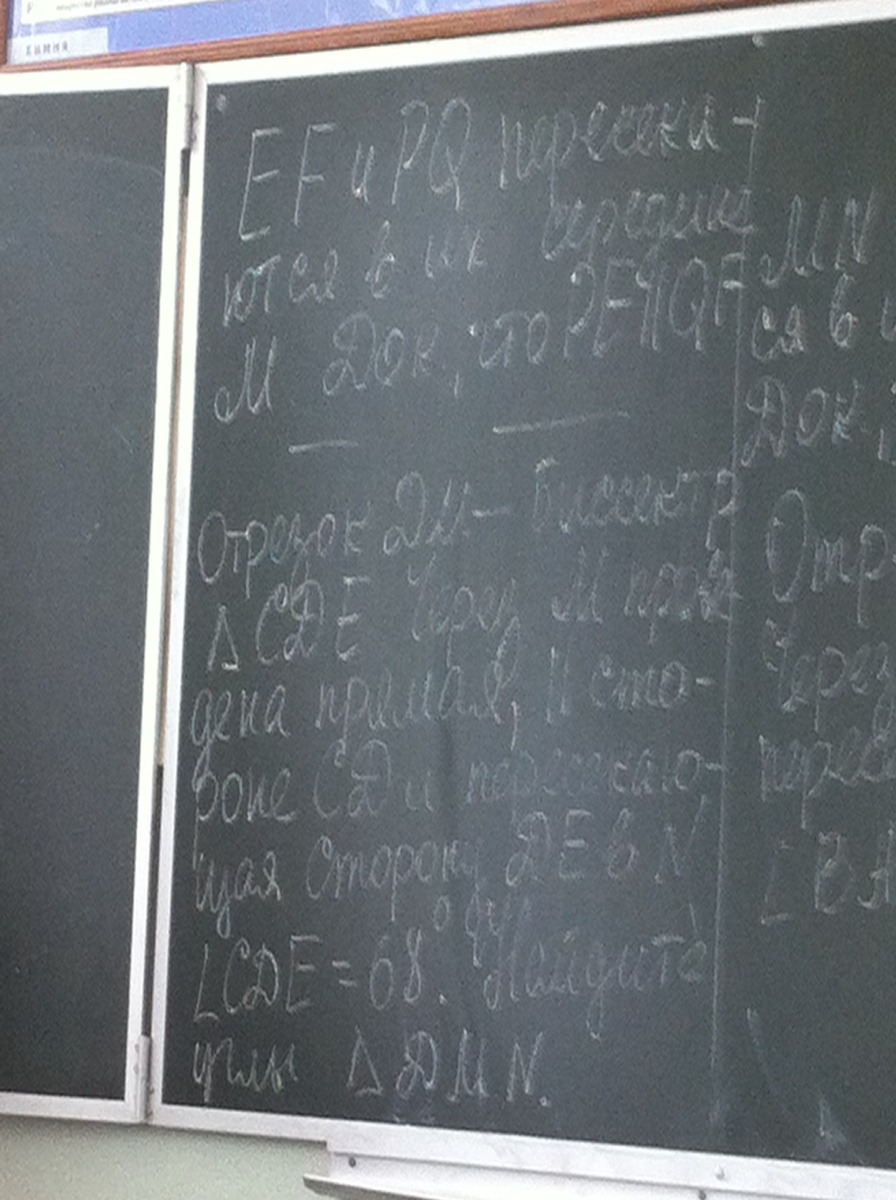 ХИМИЯ
EF и PQ пересека-
ются в их середине
М Док, что PE || QF
Отрезок DM - биссектр
Δ CDE Через М прове
дена прямая, || сто-
роне CD и пересекаю-
щая сторону DE в N
∠CDE = 68°. Найдите
углы Δ DMN.
MN
ся в
Док.
Отр
Через
перес
∠BA